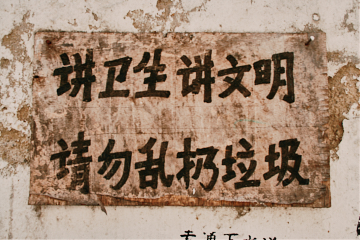 讲卫生讲文明
请勿乱扔垃圾